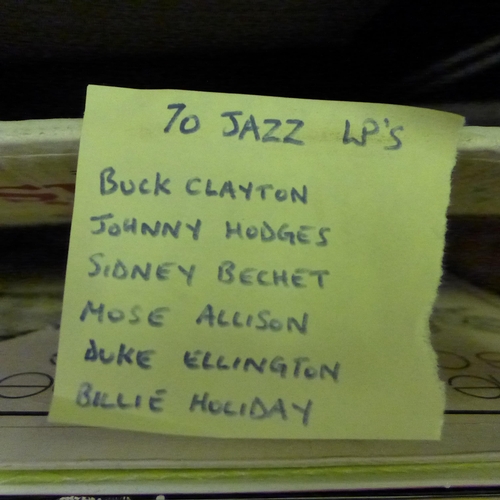 70 JAZZ LP'S
BUCK CLAYTON
JOHNNY HODGES
SIDNEY BECHET
MOSE ALLISON
DUKE ELLINGTON
BILLIE HOLIDAY